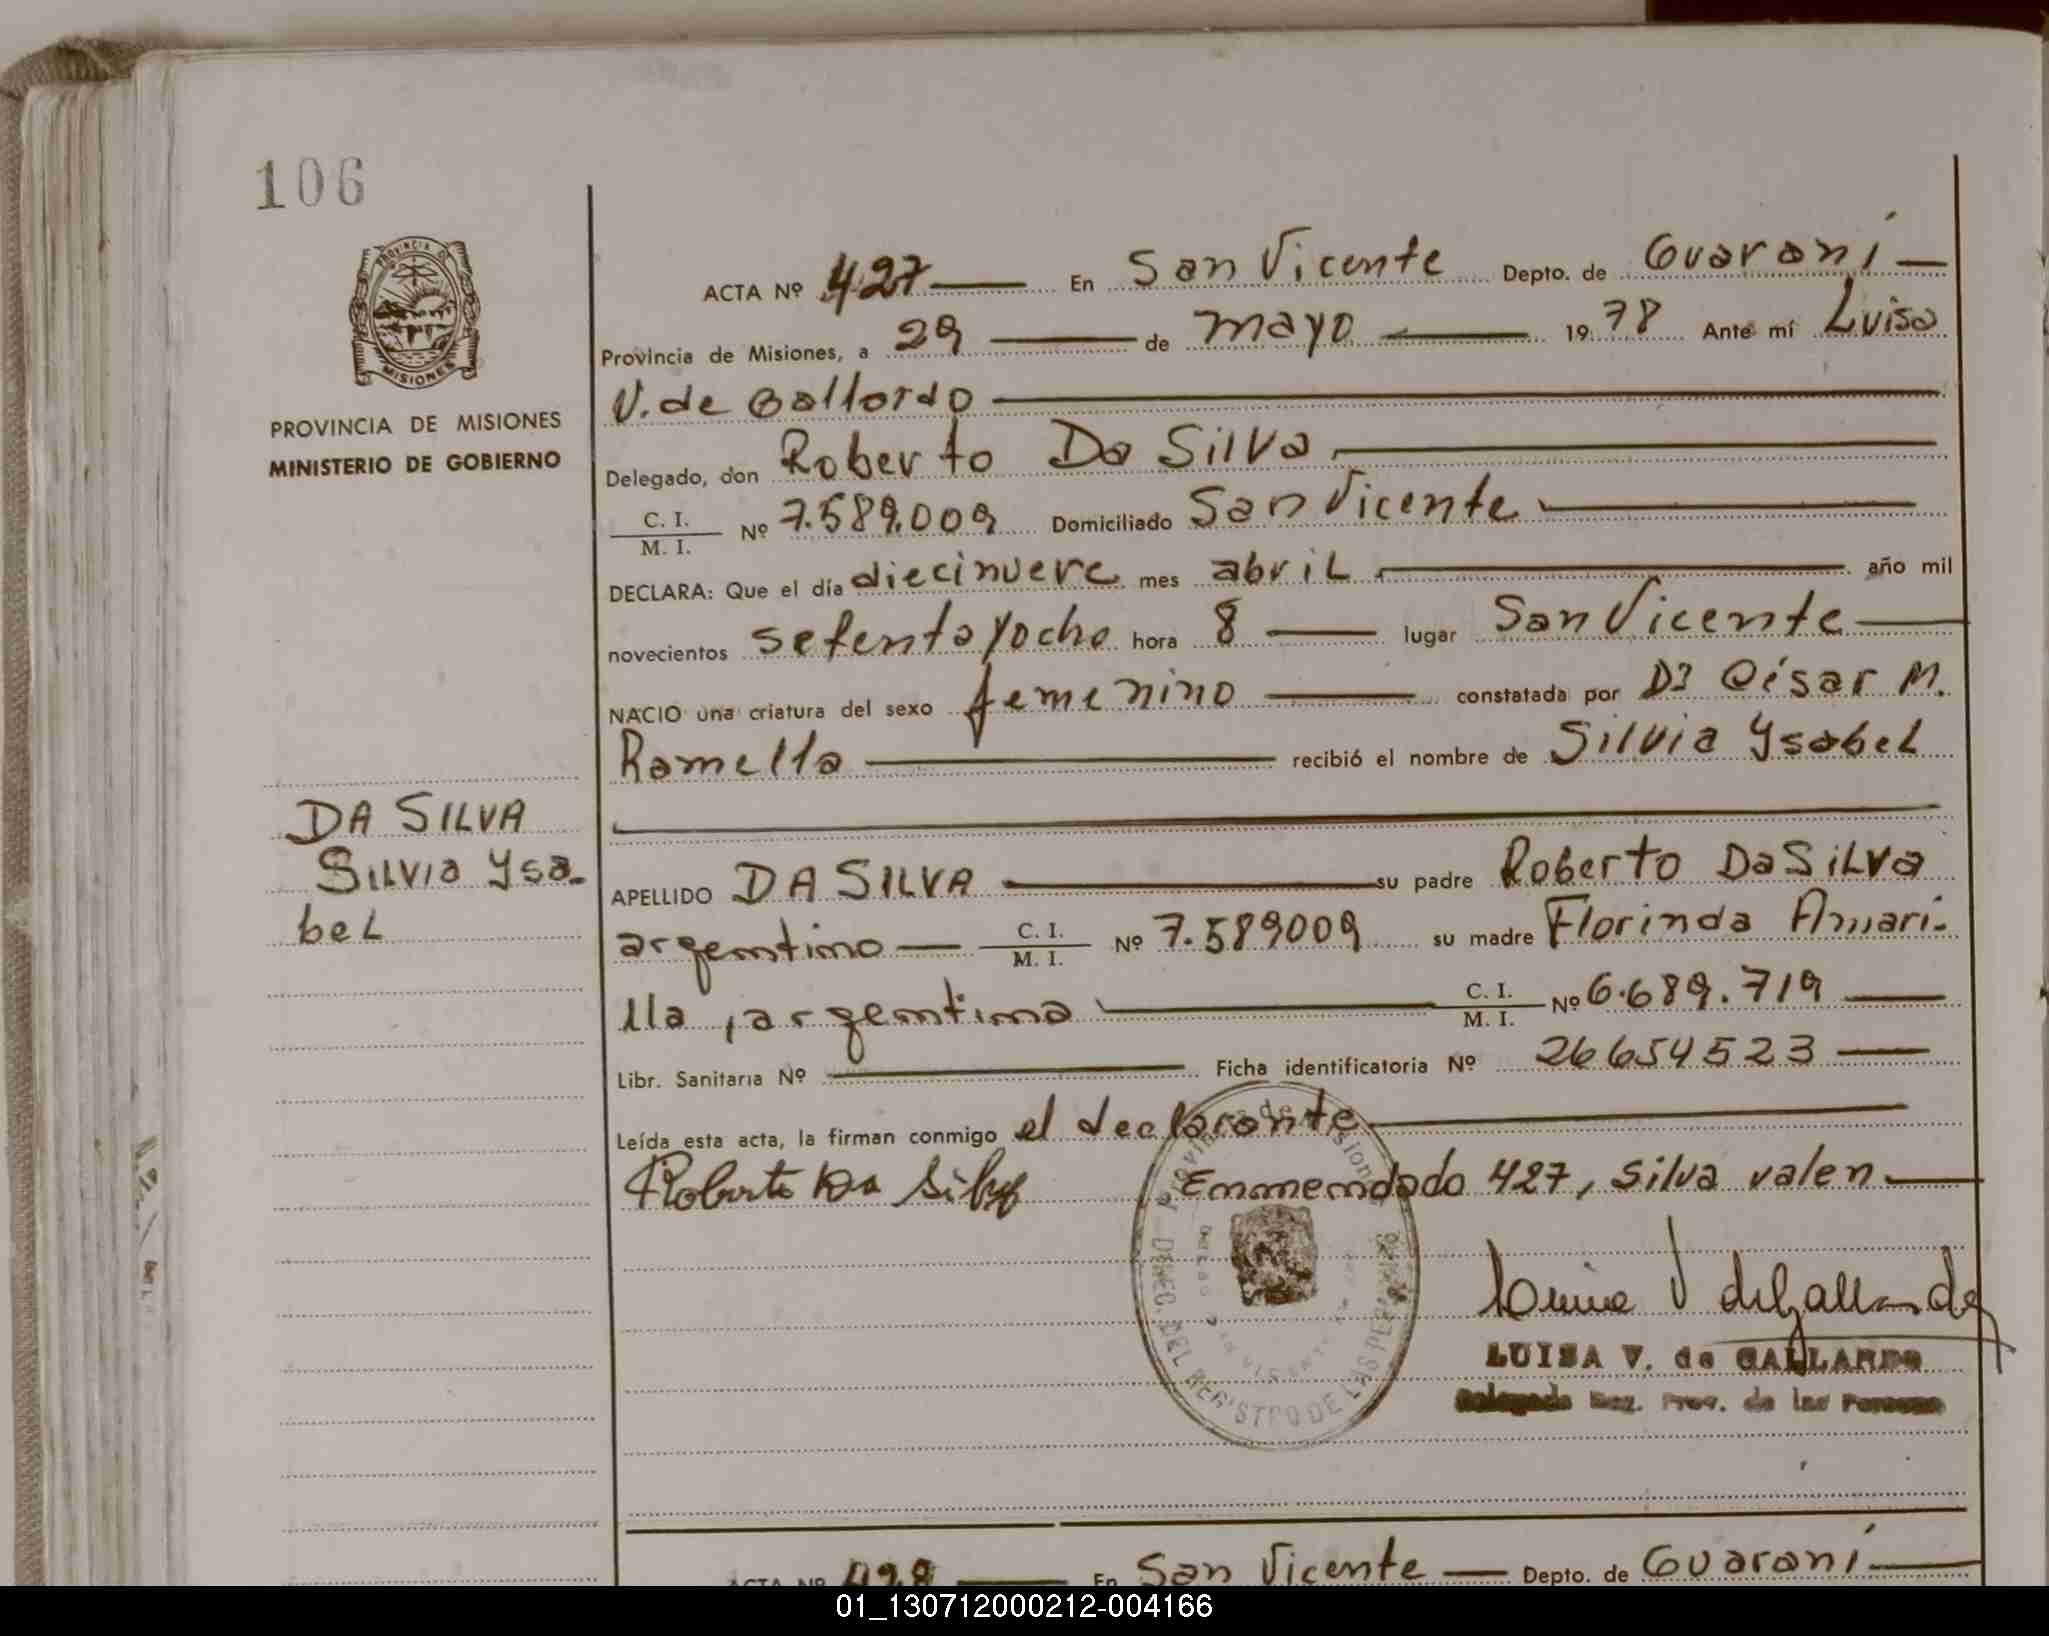 106
PROVINCIA
MISIONES
PROVINCIA DE MISIONES
MINISTERIO DE GOBIERNO
ACTA Nº 427 En San Vicente Depto. de Guaraní
Provincia de Misiones, a 29 de mayo 1978 Ante mí Luisa
V. de Gallardo
Delegado, don Roberto Da Silva
C. I. / M. I. Nº 7.589.009 Domiciliado San Vicente
DECLARA: Que el día diecinueve mes abril año mil
novecientos setenta y ocho hora 8 lugar San Vicente
NACIO una criatura del sexo femenino constatada por Dr César M.
Ramella recibió el nombre de Silvia Ysabel
DA SILVA
Silvia Ysa-
bel
APELLIDO DA SILVA su padre Roberto Da Silva
argentino C. I. / M. I. Nº 7.589009 su madre Florinda Amari-
lla, argentina C. I. / M. I. Nº 6.689.719
Libr. Sanitaria Nº Ficha identificatoria Nº 26654523
Leída esta acta, la firman conmigo el declarante
Roberto Da Silva Enmendado 427, Silva valen
DEL REGISTRO DE LAS PER
Luisa V de Gallardo
LUISA V. de GALLARDO
Delegada Reg. Prov. de las Personas
ACTA Nº 428 En San Vicente Depto. de Guaraní
01_130712000212-004166